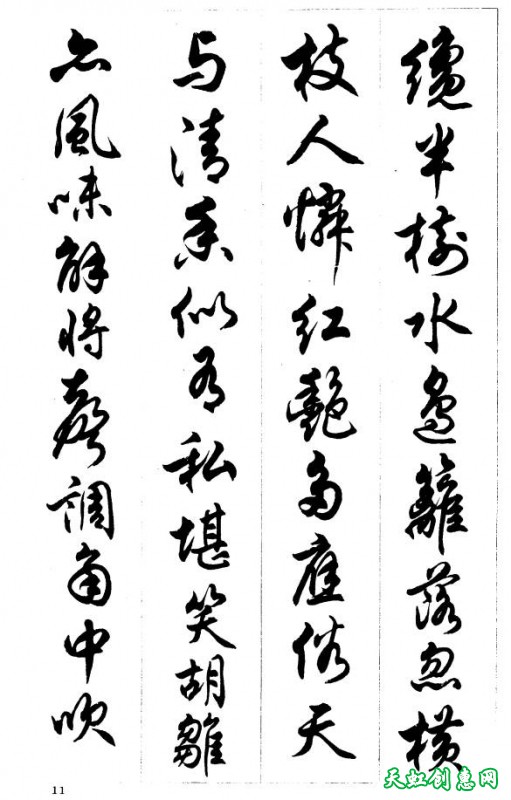 纔半樹水邊籬落忽橫
枝人憐紅艷多應俗天
与清香似有私堪笑胡雛
亦風味解將聲調角中吹
11
天虹创惠网